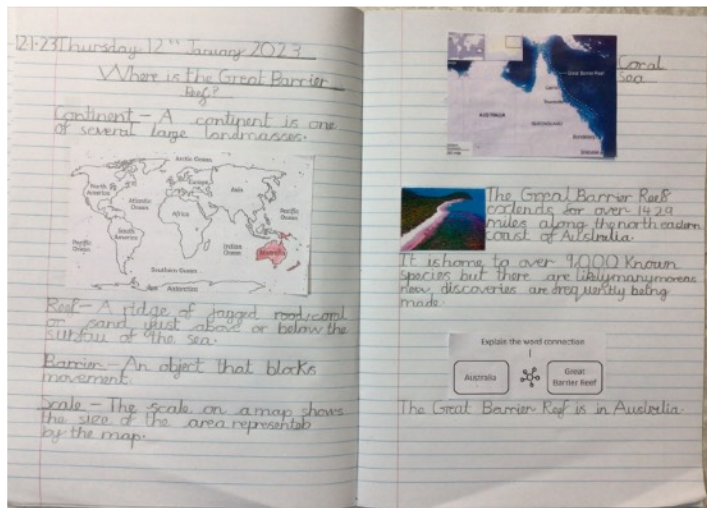 12-1-23 Thursday 12th January 2023
Where is the Great Barrier
Reef?
Continent - A continent is one
of several large landmasses.
Arctic Ocean
North America
Europe
Asia
Atlantic Ocean
Pacific Ocean
Africa
South America
Pacific Ocean
Indian Ocean
Australia
Southern Ocean
Antarctica
Reef - A ridge of jagged
or sand just above or below the
of the sea.
Barrier - An object that blocks
movement.
Scale - The scale on a map shows
the size of the area represented
by the map.
Coral
Sea
Great Barrier Reef
AUSTRALIA
QUEENSLAND
The Great Barrier Reef
extends for over 1429
miles along the north eastern
coast of Australia.
It is home to over 9000 Known
species but there are likely many more as
new discoveries are frequently being
made.
Explain the word connection
Australia
Great
Barrier Reef
The Great Barrier Reef is in Australia.